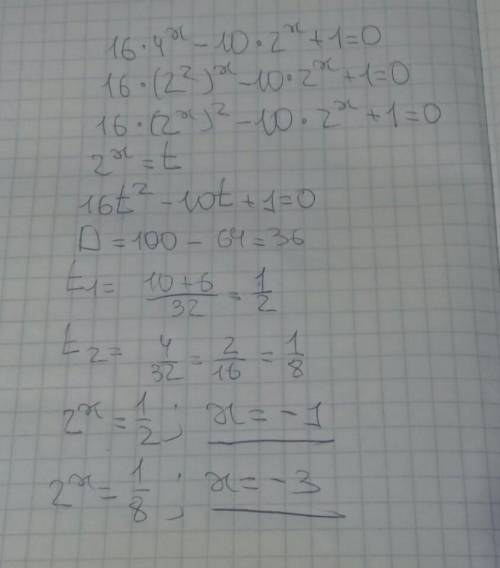 16·4ˣ-10·2ˣ+1=0
16·(2²)ˣ-10·2ˣ+1=0
16·(2ˣ)²-10·2ˣ+1=0
2ˣ=t
16t²-10t+1=0
D=100-64=36
t₁= (10+6)/32 = 1/2
t₂= 4/32 = 2/16 = 1/8
2ˣ=1/2; x=-1
2ˣ=1/8; x=-3